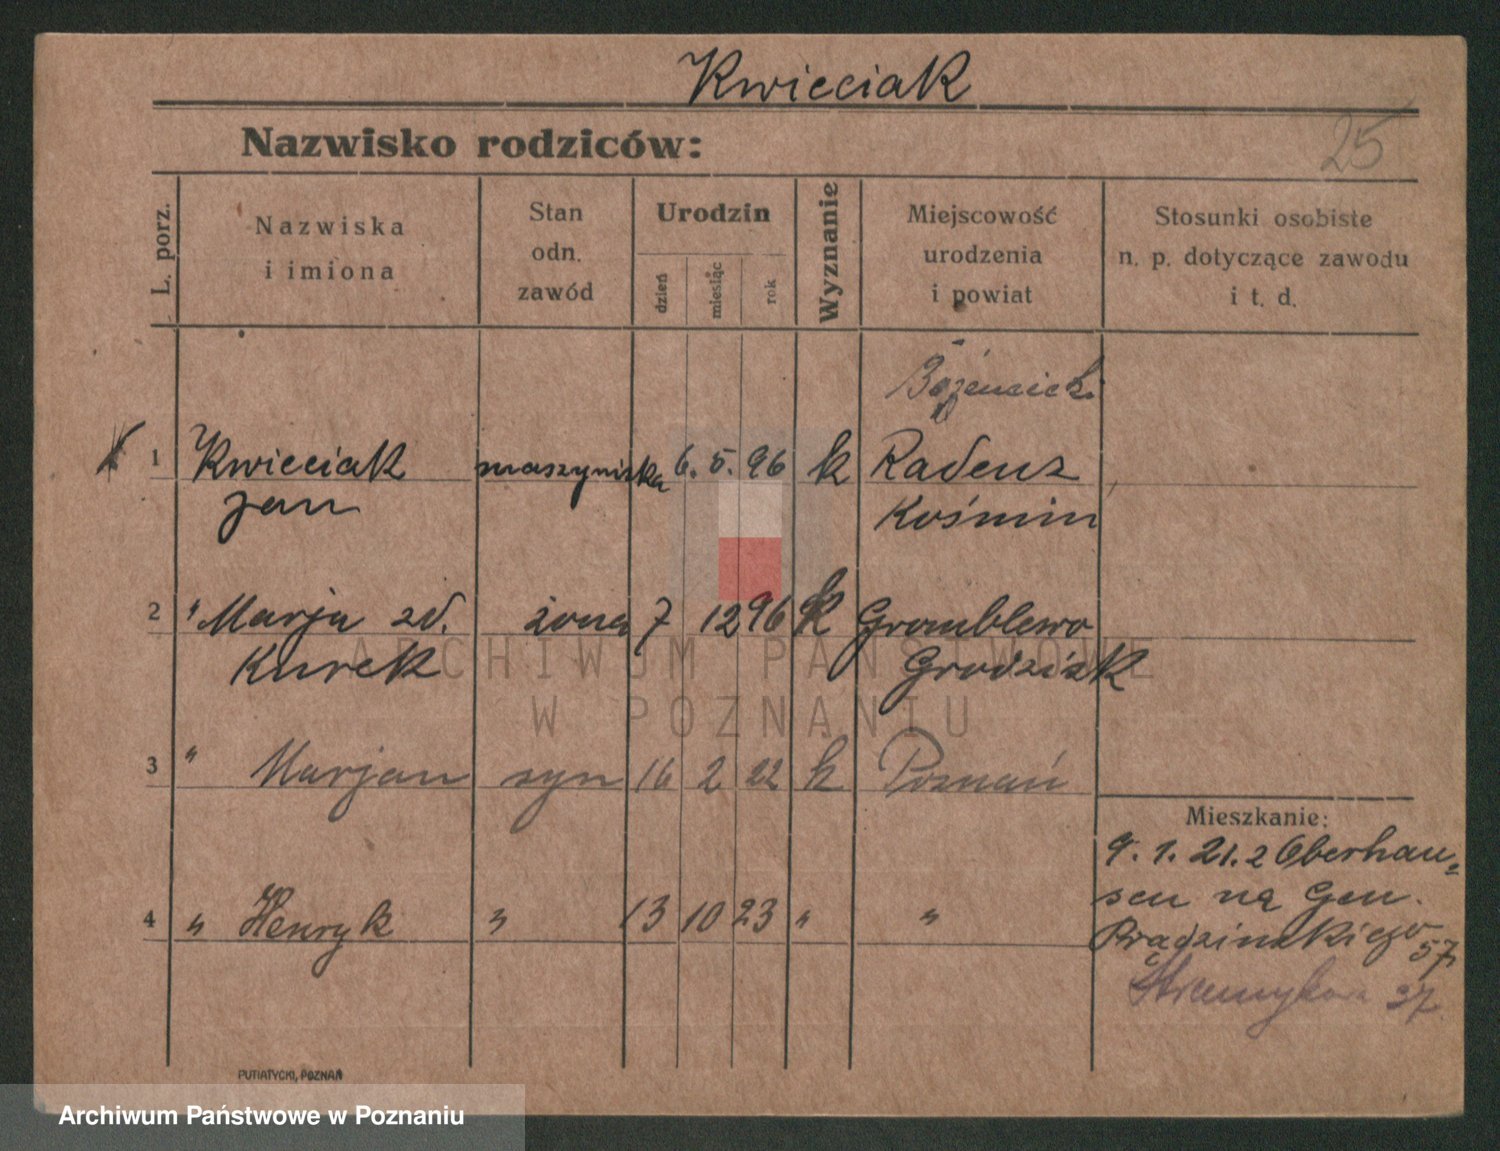 Kwieciak
Nazwisko rodziców:
25
L. porz.
Nazwiska
i imiona
Stan
odn.
zawód
Urodzin
dzień
miesiąc
rok
Wyznanie
Miejscowość
urodzenia
i powiat
Stosunki osobiste
n. p. dotyczące zawodu
i t. d.
1 Kwieciak maszynistka 6. 5. 96 k Radenz
Jan Kośmin
2 " Marja zd. żona 7 12 96 k Gromblewo
Kurek Grodzisk
ARCHIWUM PAŃSTWOWE
W POZNANIU
3 " Marjan syn 16 2 22 k Poznań
Mieszkanie:
9. 1. 21. z Oberhau-
sen na Gen.
4 " Henryk " 13 10 23 " "
Prądzinskiego 57
37
PUTIATYCKI, POZNAŃ
Archiwum Państwowe w Poznaniu